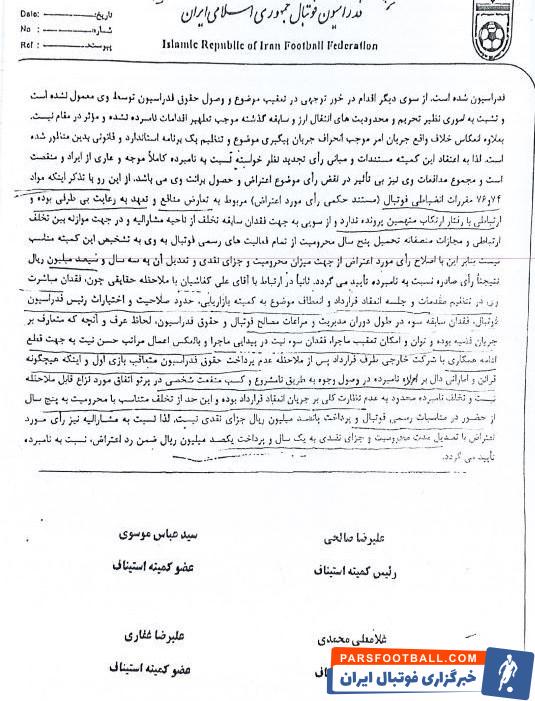 Date: تاریخ:
No : شماره:
Ref : پیوست:
فدراسیون فوتبال جمهوری اسلامی ایران
Islamic Republic of Iran Football Federation
فدراسیون شده است. از سوی دیگر اقدام در خور توجهی در تعقیب موضوع و وصول حقوق فدراسیون توسط وی معمول نشده است
و تشبث به اموری نظیر تحریم و محدودیت های انتقال ارز و سابقه گذشته موجب تطهیر اقدامات نامبرده نشده و مؤثر در مقام نیست.
بعلاوه انعکاس خلاف واقع جریان امر موجب انحراف جریان پیگیری موضوع و تنظیم یک برنامه استاندارد و قانونی بدین منظور شده
است. لذا به اعتقاد این کمیته مستندات و مبانی رأی تجدید نظر خواسته نسبت به نامبرده کاملاً موجه و عاری از ایراد و منقصت
و مجموع مدافعات وی نیز بی تأثیر در نقض رأی موضوع اعتراض و حصول برائت وی می باشد. از این رو با تذکر اینکه مواد
۷۴ و ۷۶ مقررات انضباطی فوتبال (مستند حکمی رأی مورد اعتراض) مربوط به تعارض منافع و تعهد به رعایت بی طرفی بوده و
ارتباطی با رفتار ارتکاب متهمین پرونده ندارد و از سویی به جهت فقدان سابقه تخلف از ناحیه مشارالیه و در جهت موازنه بین تخلف
ارتباطی و مجازات منصفانه تحمیل پنج سال محرومیت از تمام فعالیت های رسمی فوتبال به وی به تشخیص این کمیته متناسب
نیست بنابر این با اصلاح رأی مورد اعتراض از جهت میزان محرومیت و جزای نقدی و تعدیل آن به سه سال و سیصد میلیون ریال
نتیجتاً رأی صادره نسبت به نامبرده تأیید می گردد. ثانیاً در ارتباط با آقای علی کفاشیان با ملاحظه حقایقی چون، فقدان مباشرت
وی در تنظیم مقدمات و جلسه انعقاد قرارداد و انعطاف موضوع به کمیته بازاریابی، حدود صلاحیت و اختیارات رئیس فدراسیون
فوتبال، فقدان سابقه سوء در طول دوران مدیریت و مراعات مصالح فوتبال و حقوق فدراسیون، لحاظ عرف و آنچه که متعارف بر
جریان قضیه بوده و توان و امکان تعقیب ماجرا، فقدان سوء نیت در پیدایی ماجرا و بالعکس اعمال مراتب حسن نیت به جهت قطع
ادامه همکاری با شرکت خارجی طرف قرارداد پس از ملاحظه عدم پرداخت حقوق فدراسیون متعاقب بازی اول و اینکه هیچگونه
قرائن و اماراتی دال بر اراده نامبرده در وصول وجوه به طریق نامشروع و کسب منفعت شخصی در پرتو اتفاق مورد نزاع قابل ملاحظه
نیست و تخلف نامبرده محدود به عدم نظارت کلی بر جریان انعقاد قرارداد بوده و این حد از تخلف متناسب با محرومیت به پنج سال
از حضور در مناسبات رسمی فوتبال و پرداخت پانصد میلیون ریال جزای نقدی نیست. لذا نسبت به مشارالیه نیز رأی مورد
اعتراض با تعدیل مدت محرومیت و جزای نقدی به یک سال و پرداخت یکصد میلیون ریال ضمن رد اعتراض، نسبت به نامبرده
تأیید می گردد.
علیرضا صالحی سید عباس موسوی
رئیس کمیته استیناف عضو کمیته استیناف
غلامعلی محمدی علیرضا غفاری
عضو کمیته استیناف
PARSFOOTBALL.COM
خبرگزاری فوتبال ایران